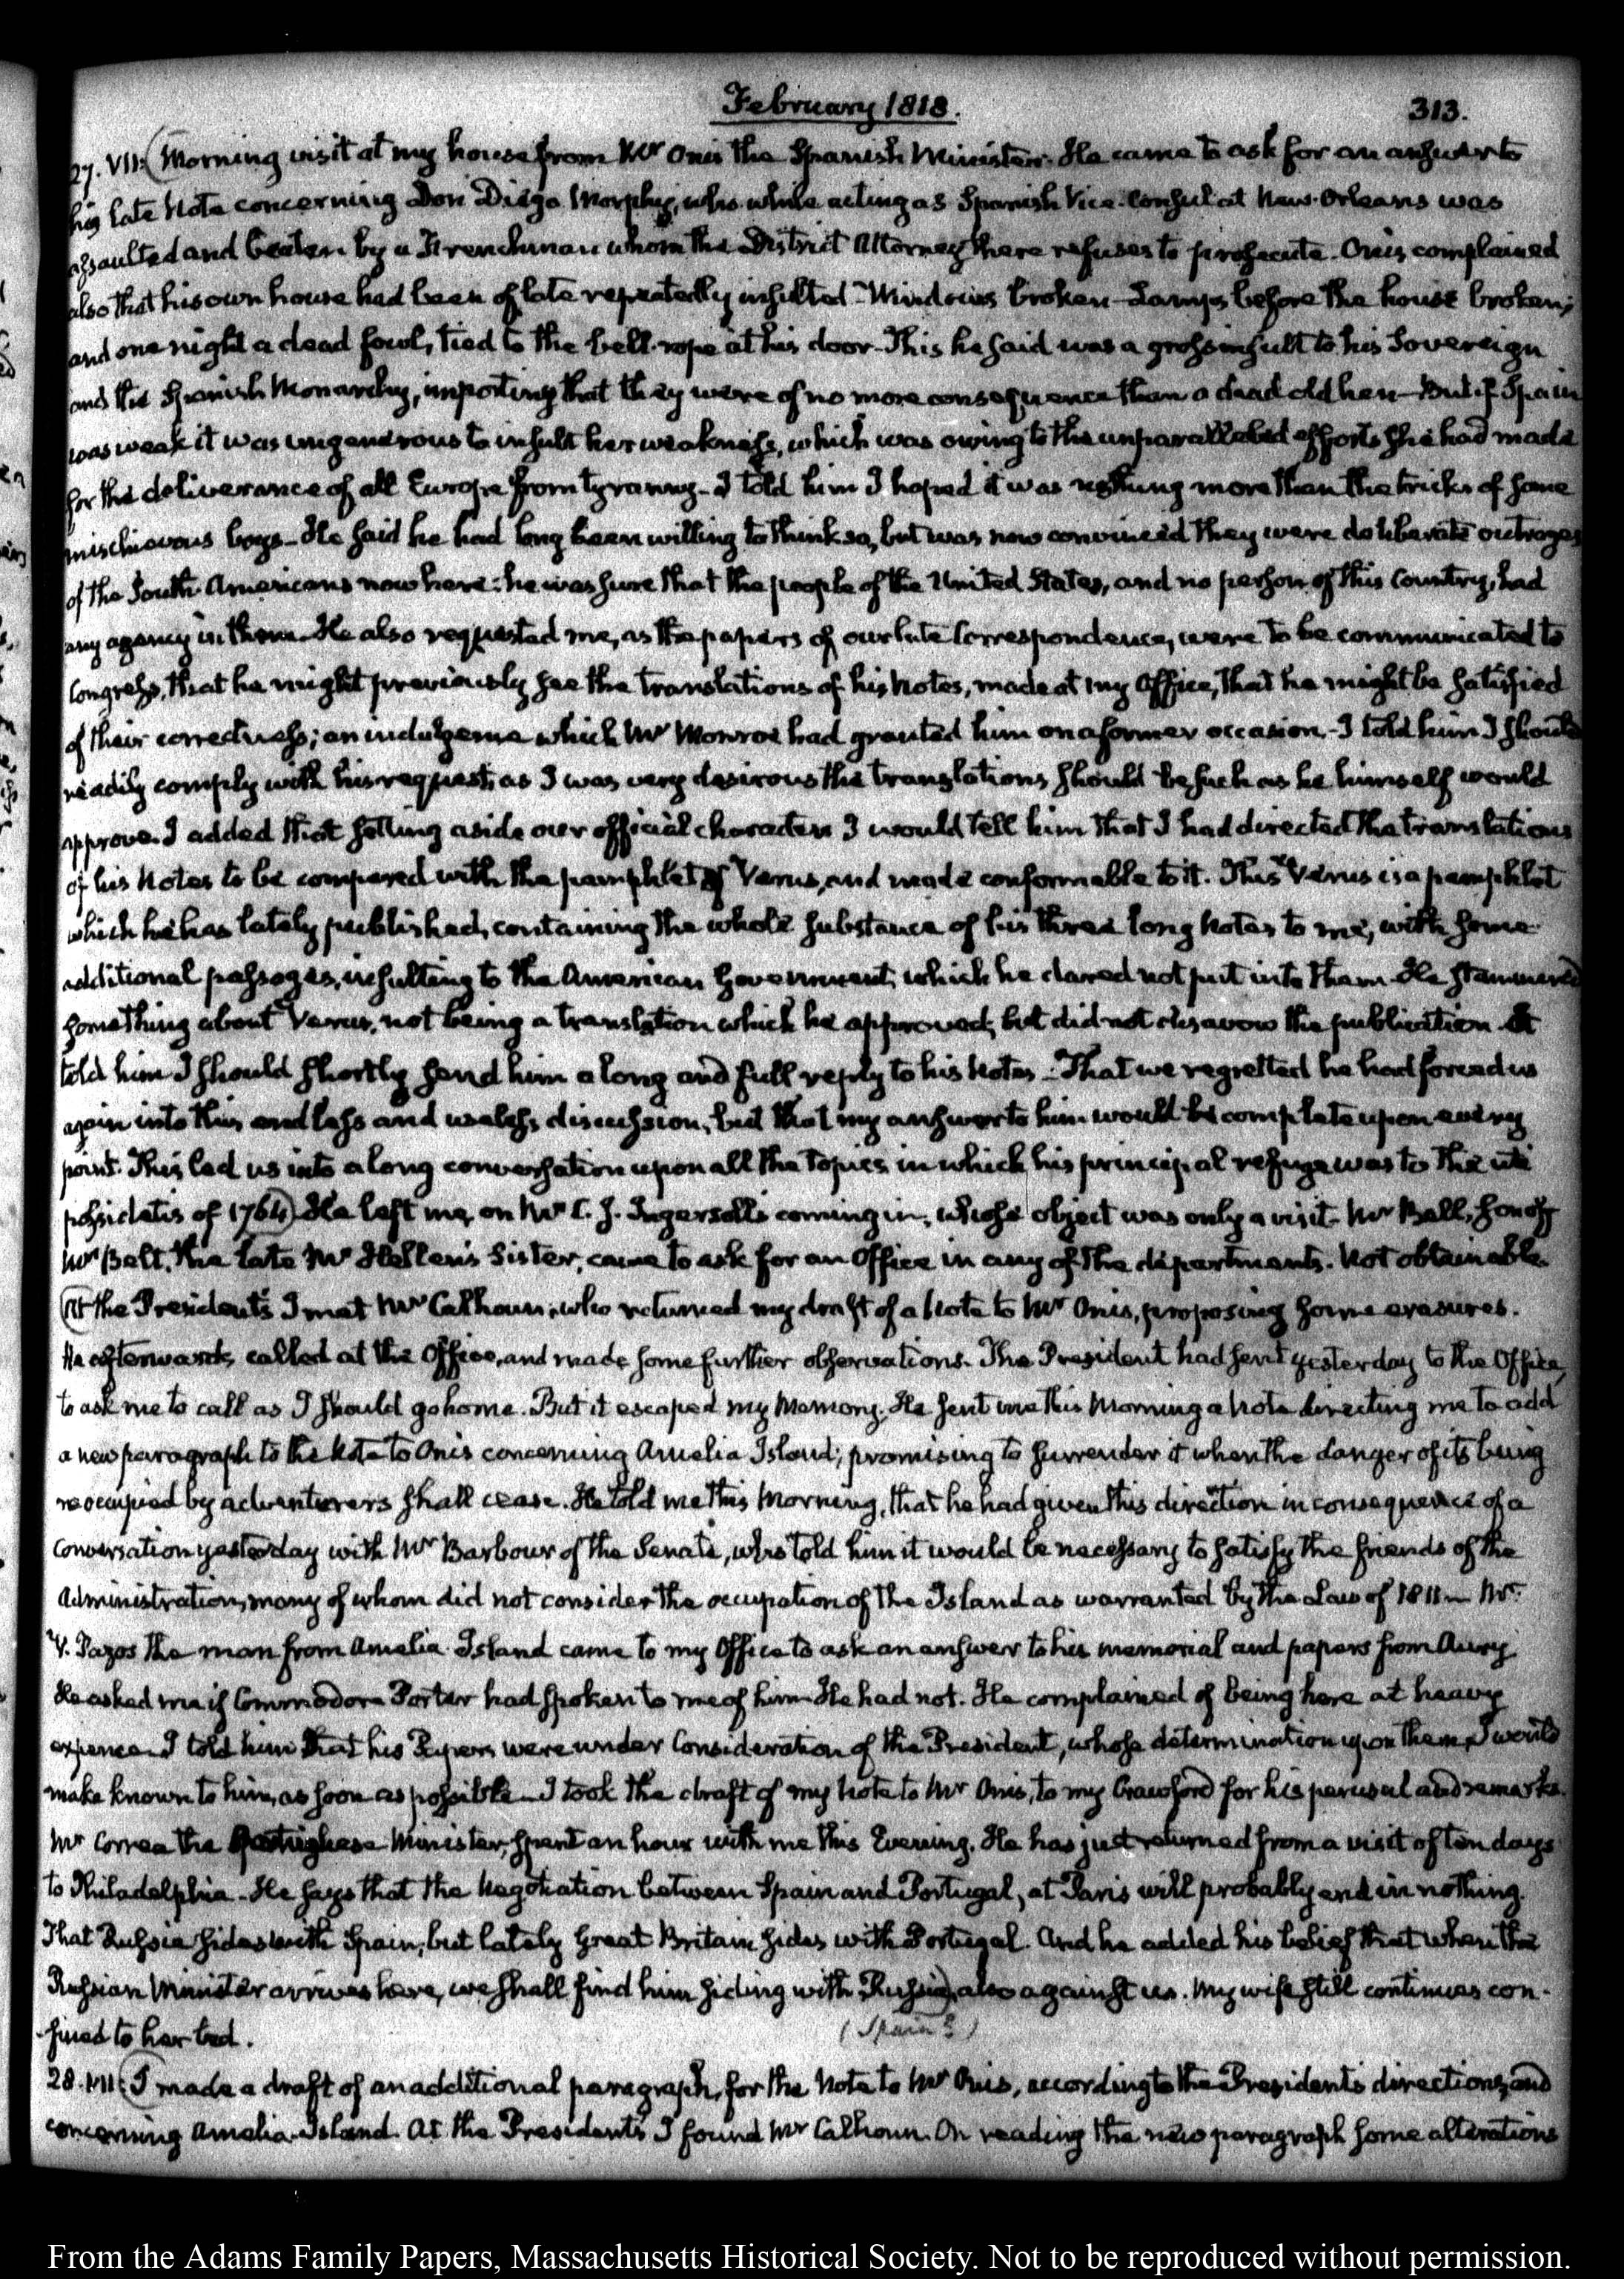 February 1818.
313.
27. VII: (Morning visit at my house from Mr Onis the Spanish Minister. He came to ask for an answer to
his late Note concerning Don Diego Morphy, who while acting as Spanish Vice-Consul at New-Orleans was
assaulted and beaten by a Frenchman whom the District Attorney there refuses to prosecute. Onis complained
also that his own house had been of late repeatedly insulted—Windows broken—Lamps before the house broken;
and one night a dead fowl, tied to the bell-rope at his door. This he said was a gross insult to his Sovereign
and the Spanish Monarchy, importing that they were of no more consequence than a dead old hen—But if Spain
was weak it was ungenerous to insult her weakness, which was owing to the unparalleled efforts she had made
for the deliverance of all Europe from tyranny—I told him I hoped it was nothing more than the tricks of some
mischievous boys—He said he had long been willing to think so, but was now convinced they were deliberate outrages
of the South-Americans now here: he was sure that the people of the United States, and no person of this Country, had
any agency in them. He also requested me, as the papers of our late Correspondence, were to be communicated to
Congress, that he might previously see the translations of his Notes, made at my Office, that he might be satisfied
of their correctness; an indulgence which Mr Monroe had granted him on a former occasion.—I told him I should
readily comply with his request, as I was very desirous the translations should be such as he himself would
approve. I added that setting aside our official characters I would tell him that I had directed the translations
of his Notes to be compared with the pamphlet of Verus, and made conformable to it. This Verus is a pamphlet
which he has lately published, containing the whole substance of his three long Notes to me, with some
additional passages, insulting to the American Government, which he dared not put into them. He stammered
something about Verus, not being a translation which he approved, but did not disavow the publication. I
told him I should shortly send him a long and full reply to his Notes—That we regretted he had forced us
again into this endless and useless discussion, but that my answer to him would be complete upon every
point. This led us into a long conversation upon all the topics in which his principal refuge was to the uti
possidetis of 1764) He left me, on Mr C. J. Ingersoll's coming in; whose object was only a visit. Mr Belt, son of
Mrs Belt, the late Mr Hellen's Sister, came to ask for an Office in any of the departments. Not obtainable.
(At the President's I met Mr Calhoun, who returned my draft of a Note to Mr Onis, proposing some erasures.
He afterwards called at the Office, and made some further observations. The President had sent yesterday to the Office,
to ask me to call as I should go home. But it escaped my Memory. He sent me this Morning a Note directing me to add
a new paragraph to the Note to Onis concerning Amelia Island; promising to surrender it when the danger of its being
reoccupied by adventurers shall cease. He told me this Morning, that he had given this direction in consequence of a
conversation yesterday with Mr Barbour of the Senate, who told him it would be necessary to satisfy the friends of the
Administration, many of whom did not consider the occupation of the Island as warranted by the Law of 1811—Mr
V. Pazos the man from Amelia Island came to my Office to ask an answer to his memorial and papers from Aury
He asked me if Commodore Porter had spoken to me of him. He had not. He complained of being here at heavy
expence. I told him that his Papers were under Consideration of the President, whose determination upon them, I would
make known to him, as soon as possible—I took the draft of my Note to Mr Onis, to my Crawford for his perusal and remarks.
Mr Correa the Portuguese Minister, spent an hour with me this Evening. He has just returned from a visit of ten days
to Philadelphia—He says that the Negotiation between Spain and Portugal, at Paris will probably end in nothing.
That Russia sides with Spain, but lately Great Britain sides with Portugal. And he added his belief that when the
Russian Minister arrives here, we shall find him siding with Russia) also against us. My wife still continues con-
fined to her bed.
(Spain?)
28. VII: (I made a draft of an additional paragraph, for the Note to Mr Onis, according to the President's directions, and
concerning Amelia-Island. At the President's I found Mr Calhoun. On reading the new paragraph some alterations
From the Adams Family Papers, Massachusetts Historical Society. Not to be reproduced without permission.